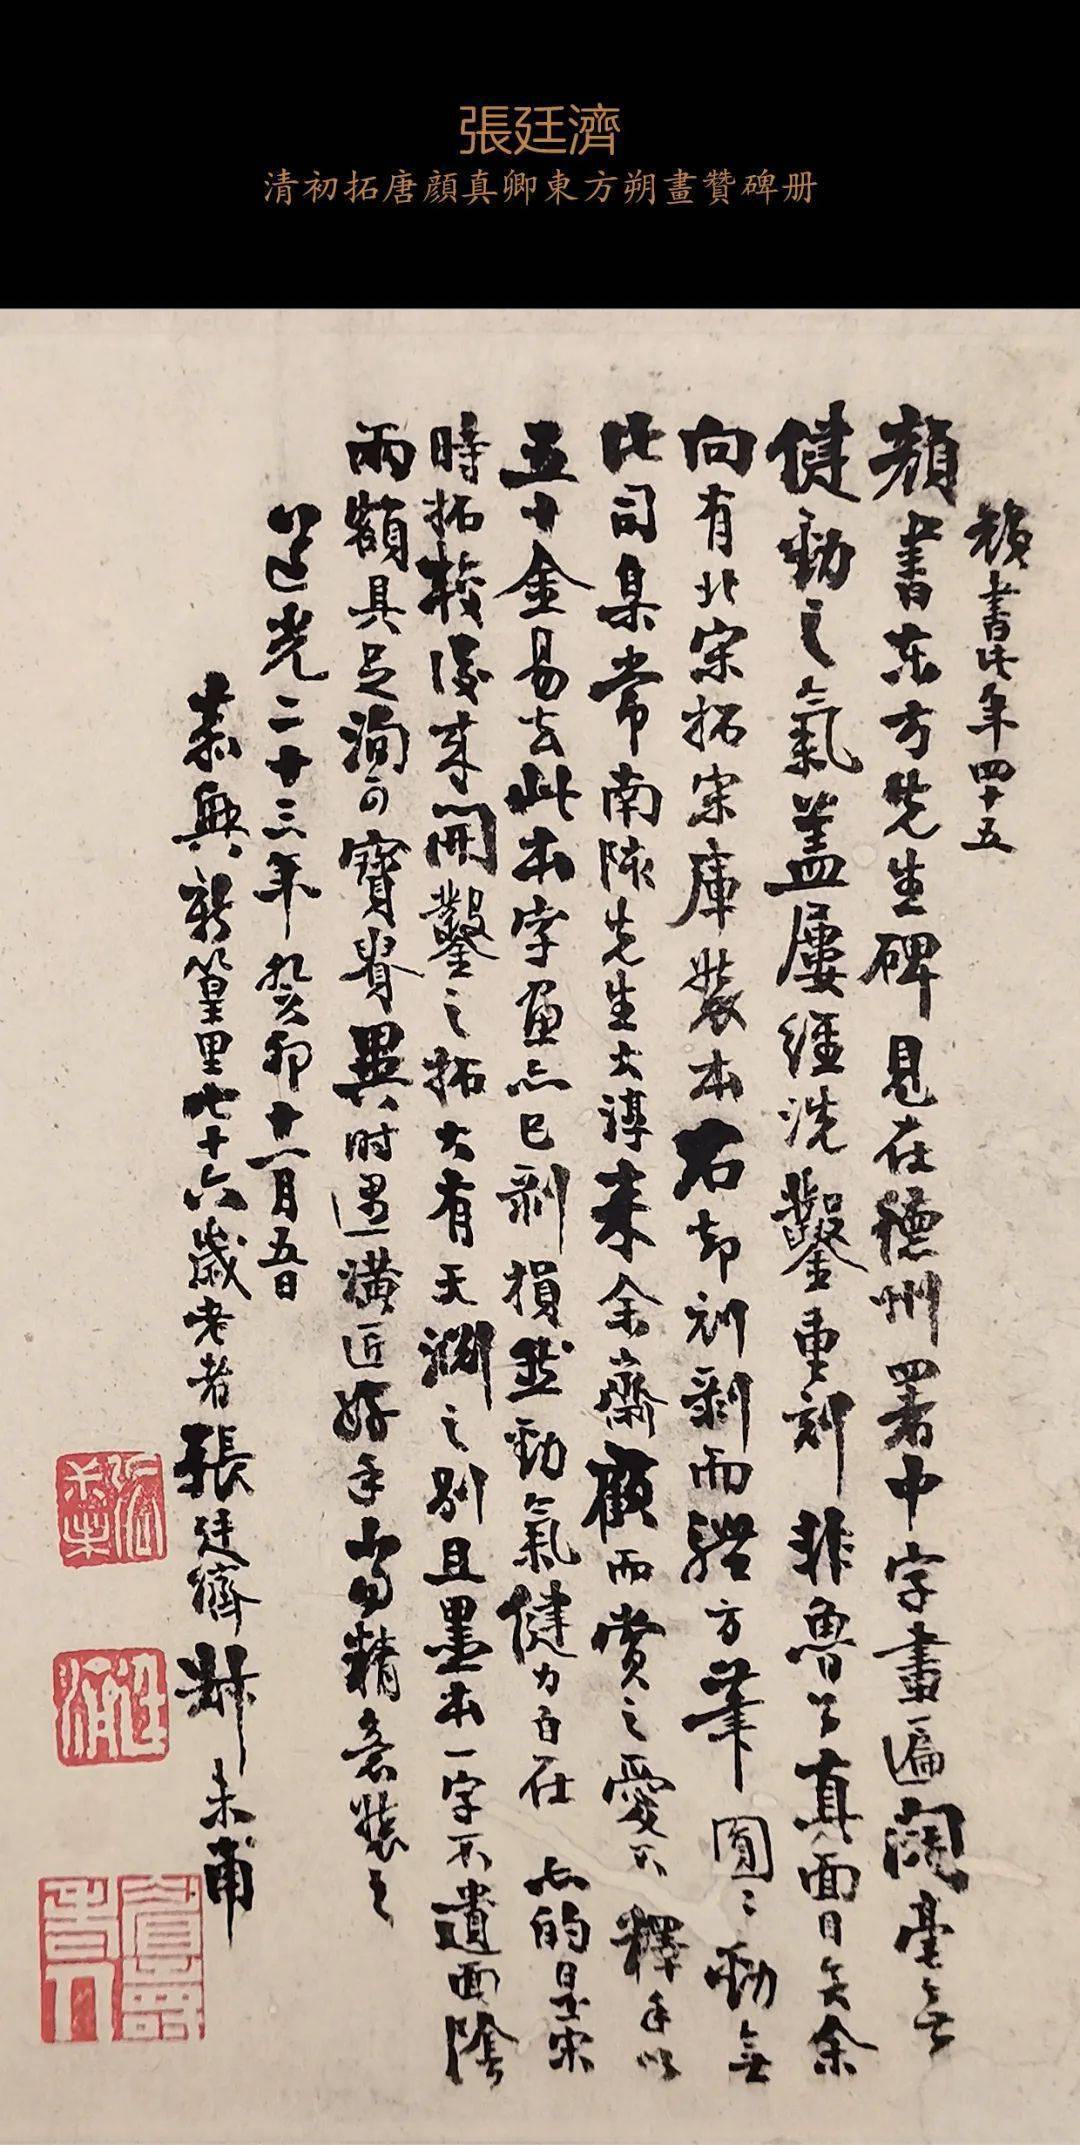 張廷濟
清初拓唐顔真卿東方朔畫贊碑册
顏書此年四十五
顏書東方先生碑見在德州署中字畫遍闊毫無
健勁之氣蓋屢經洗鑿重刻非魯公真面目矣余
向有北宋拓宋庫裝本石却刓剥而體方筆圓圓勁無
比司集常南陔先生大淳来余齋顧而賞之愛不釋手以
五十金易去此本字畫亦已剥損然勁氣健力百在亦的是宋
時拓較後来開鑿之拓大有天淵之别且墨本一字不遺面陰
兩額具足洵可寶貴異時遇潢匠好手當精意裝之
道光二十三年癸卯十一月五日
嘉興新篁里七十六歲老者張廷濟叔未甫
張叔未
廷濟